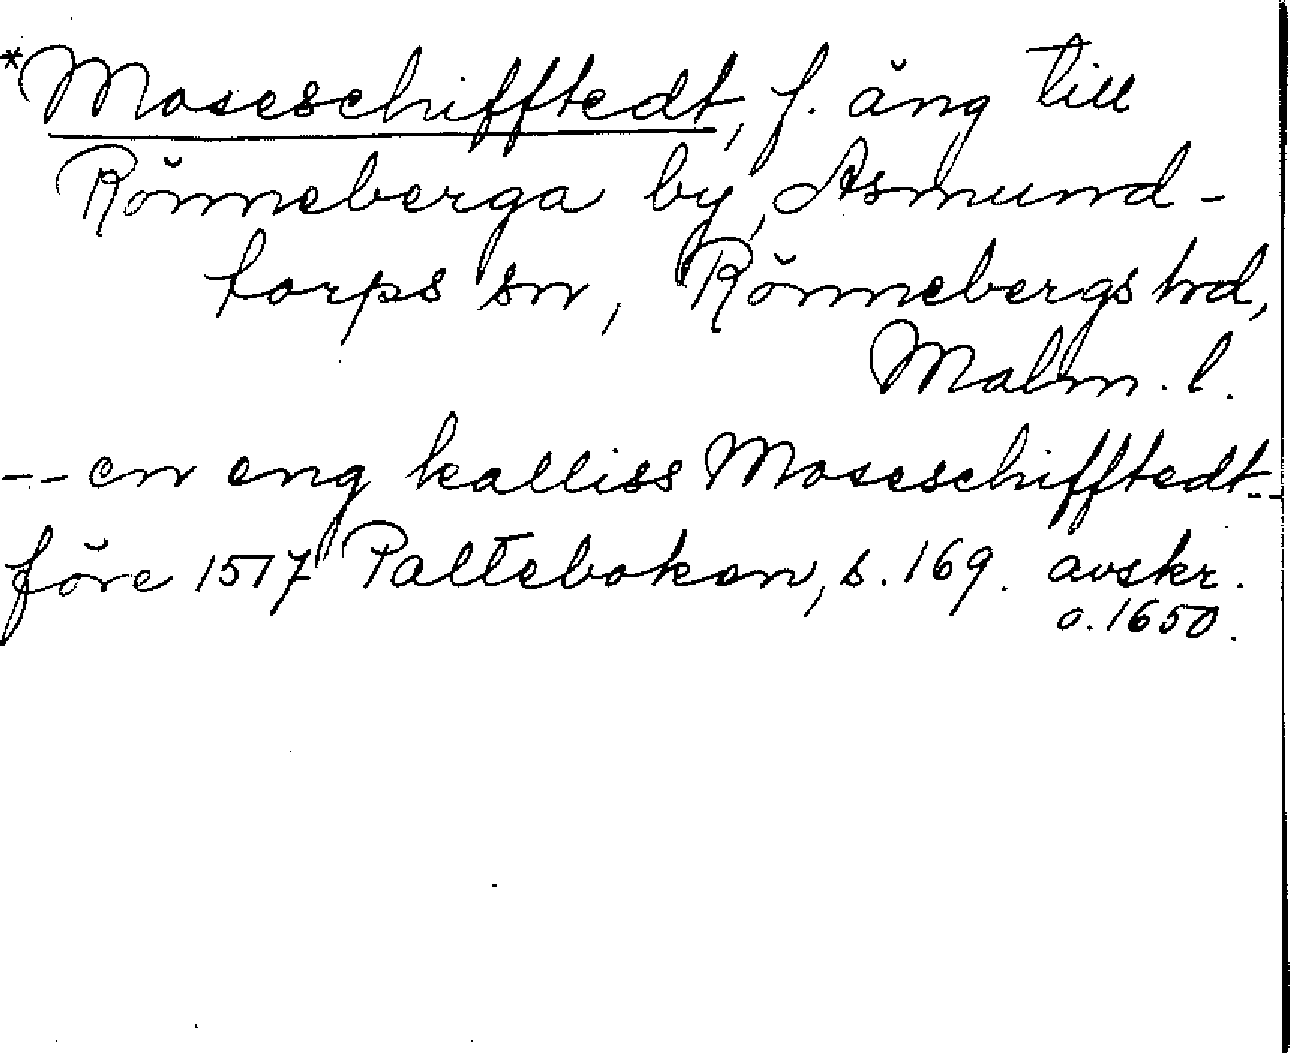 *Moseschifftedt, f. äng till
Rönneberga by, Asmund-
torps sn, Rönnebergs hd,
Malm. l.
-- en eng kalliss Moseschifftedt --
före 1517 Palteboken, s. 169. avskr.
o. 1650.